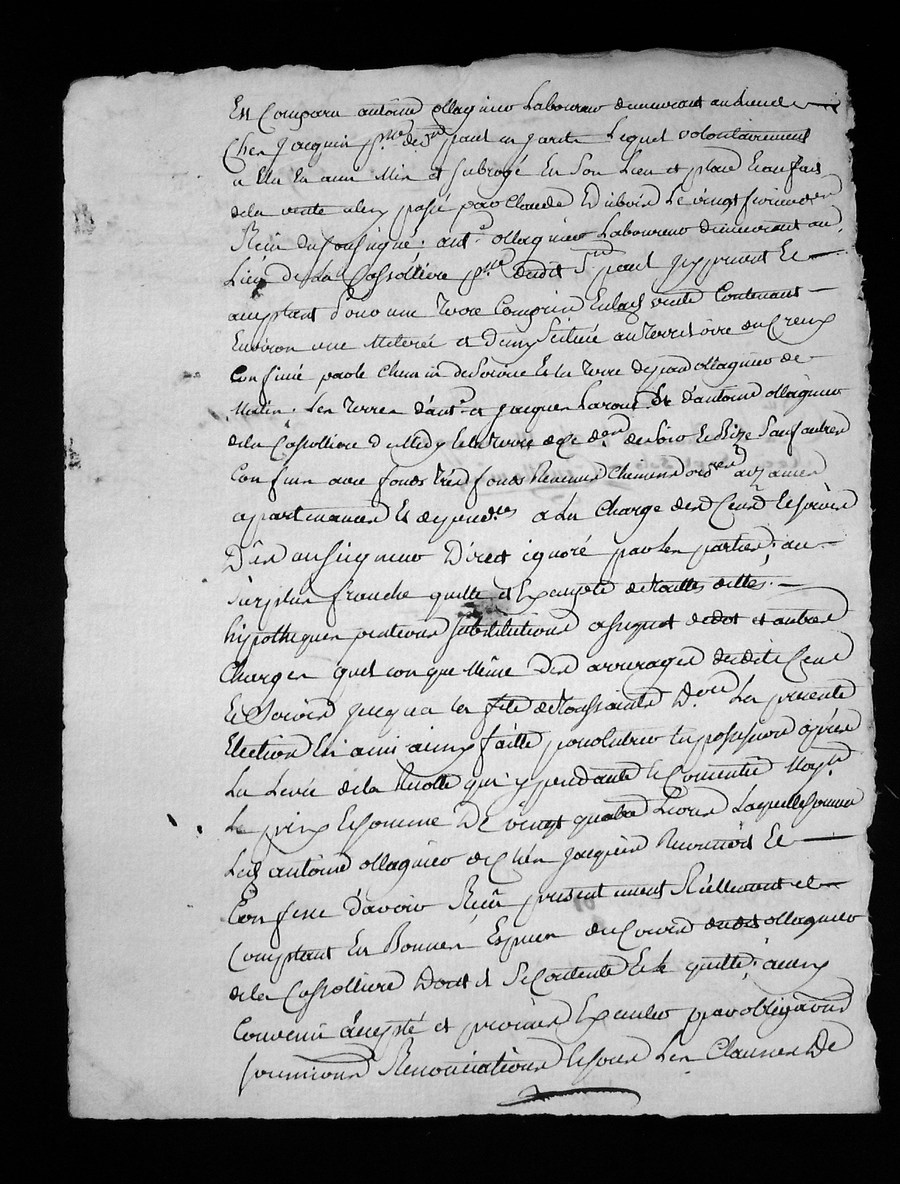 Est Comparu antoine ollagnier Laboureur demeurant au lieu de
Chez Jacquin psse de st paul en jarets Lequel volontairement
a Elu En amy Mis et subrogé En Son Lieu et place En
de la vente a luy passé par Claude Le vingt
Reçu du soussigné antne ollagnier Laboureur demeurant au
Lieu de La Cassollière psse dudit st paul jcy present Et
acceptant d'une Terre Comprise En lad vente Contenant
Environ une Meterée et demy scituée au territoire du Creux
Confinée par le Chemin de Et la Terre dejean ollagnier de
Matin. Les Terres d'antne et jacques Et d'antoine ollagnier
de la Cassolliere de Midy de soir Et Bize Sauf autres
Confins avec fonds tres fonds Revenus Chemins aysances
appartenances Et dependces a La Charge des Cens Et servis
Dus au seigneur Direct ignoré par Les parties, au
surplus franche quitte et Exempte de toutes dettes
hypotheques pentions substitutions et autres
Charges quelconque Même des arrerages desdits Cens
Et Servis jusqua La fête de toussaints Dere La presente
Election En ami ainsy faitte pour Entrer En possession après
La Levée de la Recolte qui y pendante Et moyt
Le prix Et somme De vingt quatre Livres Laquelle somme
Led antoine ollagnier de Chez Jacquin Reconnoit Et
Confesse d'avoir Reçu presentement Réellement et
Comptant En Bonnes Especes du Cours dudit ollagnier
de la Cassolliere Dont il Se Contente Et le quitte, ainsy
Convenu accepté et promis Executer par obligations
soumissions Renonciations Et sous Les Clauses De